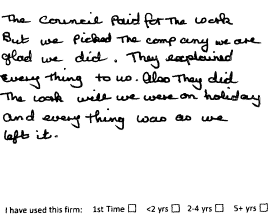 The Council Paid for The work
But we Picked The company we are
glad we did. They explained
Every thing to us. Also They did
The work will we were on holiday
and every thing was as we
left it.
I have used this firm: 1st Time ☐ <2 yrs ☐ 2-4 yrs ☐ 5+ yrs ☐